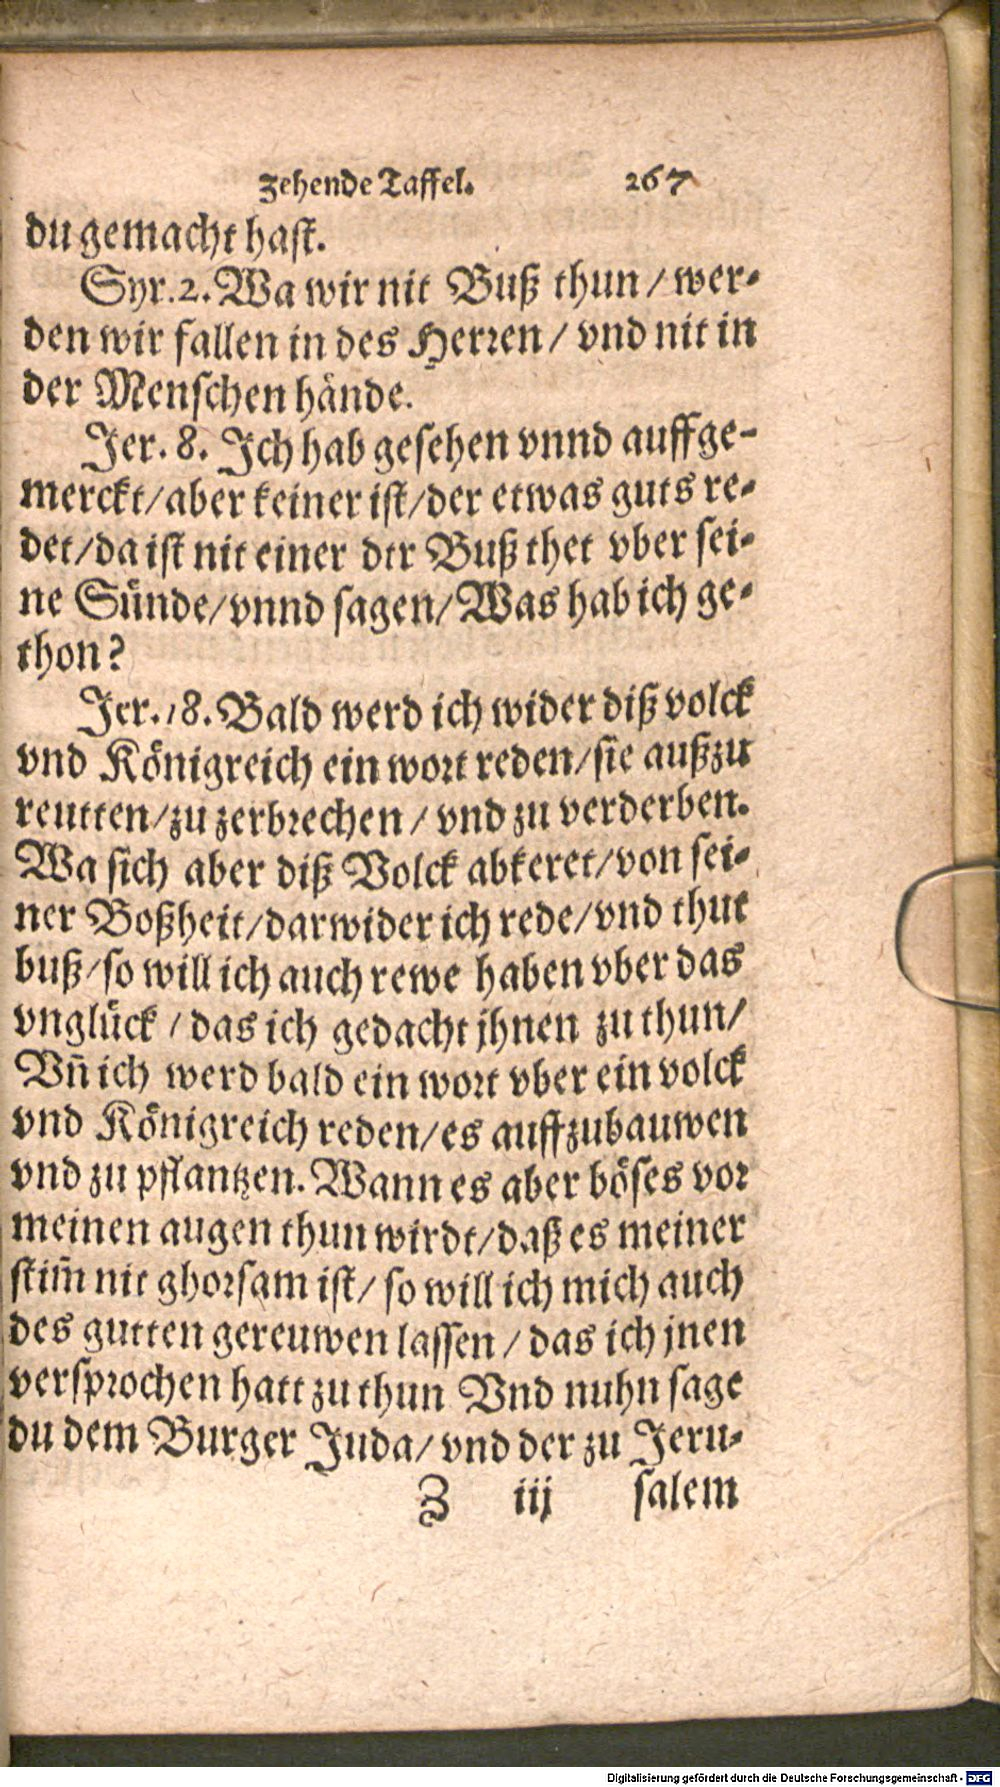 zehende Taffel. 267
du gemacht hast.
Syr. 2. Wa wir nit Buß thun / wer-
den wir fallen in des Herren / vnd nit in
der Menschen hände.
Jer. 8. Ich hab gesehen vnnd auffge-
merckt/aber keiner ist/der etwas guts re-
det/da ist nit einer dtr Buß thet vber sei-
ne Sünde/vnnd sagen/Was hab ich ge-
thon?
Jer. 18. Bald werd ich wider diß volck
vnd Königreich ein wort reden/sie außzu
reutten/zu zerbrechen / vnd zu verderben.
Wa sich aber diß Volck abkeret/von sei-
ner Boßheit/darwider ich rede/vnd thut
buß/so will ich auch rewe haben vber das
vnglück / das ich gedacht jhnen zu thun/
Vñ ich werd bald ein wort vber ein volck
vnd Königreich reden/es auffzubauwen
vnd zu pflantzen. Wann es aber böses vor
meinen augen thun wirdt/daß es meiner
stim̃ nit ghorsam ist/ so will ich mich auch
des gutten gereuwen lassen / das ich jnen
versprochen hatt zu thun Vnd nuhn sage
du dem Burger Juda/ vnd der zu Jeru-
Z iij salem
Digitalisierung gefördert durch die Deutsche Forschungsgemeinschaft - DFG